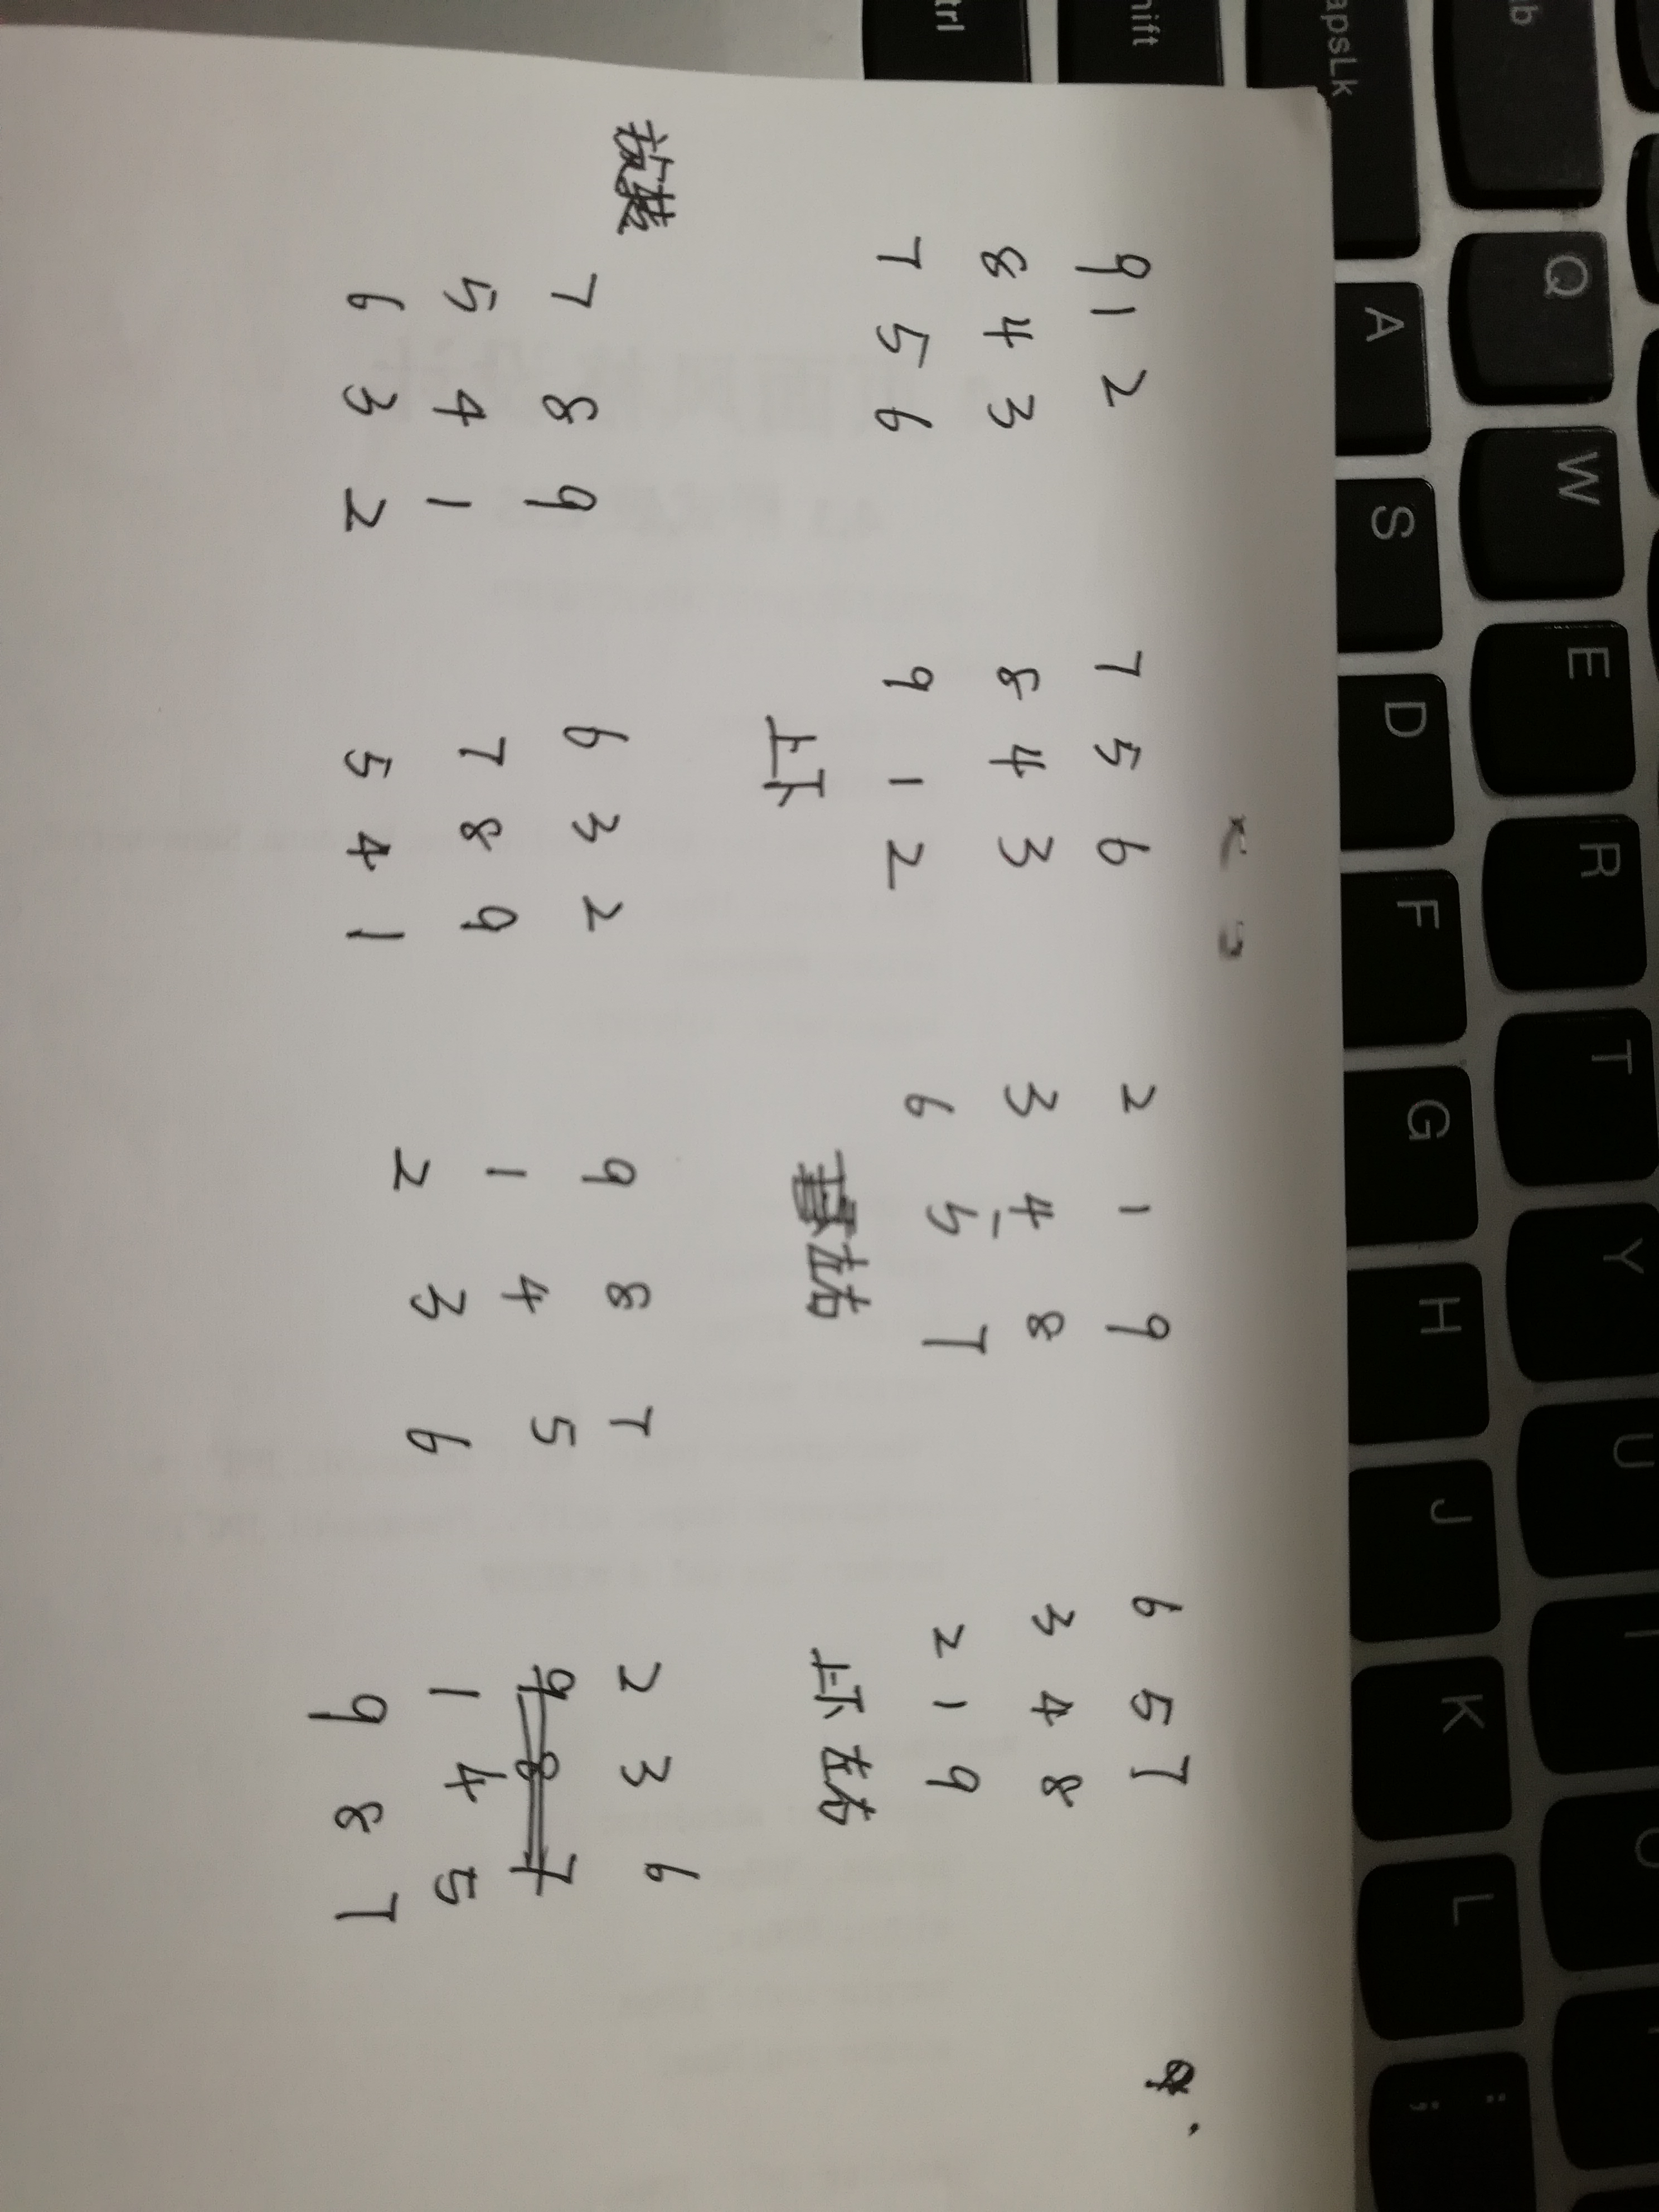 Q W E R T Y U
apsLk A S D F G H J K L ;
hift
trl
9 1 2 7 5 6 2 1 9 6 5 7
8 4 3 8 4 3 3 4 8 3 4 8
7 5 6 9 1 2 6 5 7 2 1 9
上下 左右 上下 左右
7 8 9 6 3 2 9 8 7 2 3 6
9 8 7
5 4 1 7 8 9 1 4 5 1 4 5
6 3 2 5 4 1 2 3 6 9 8 7